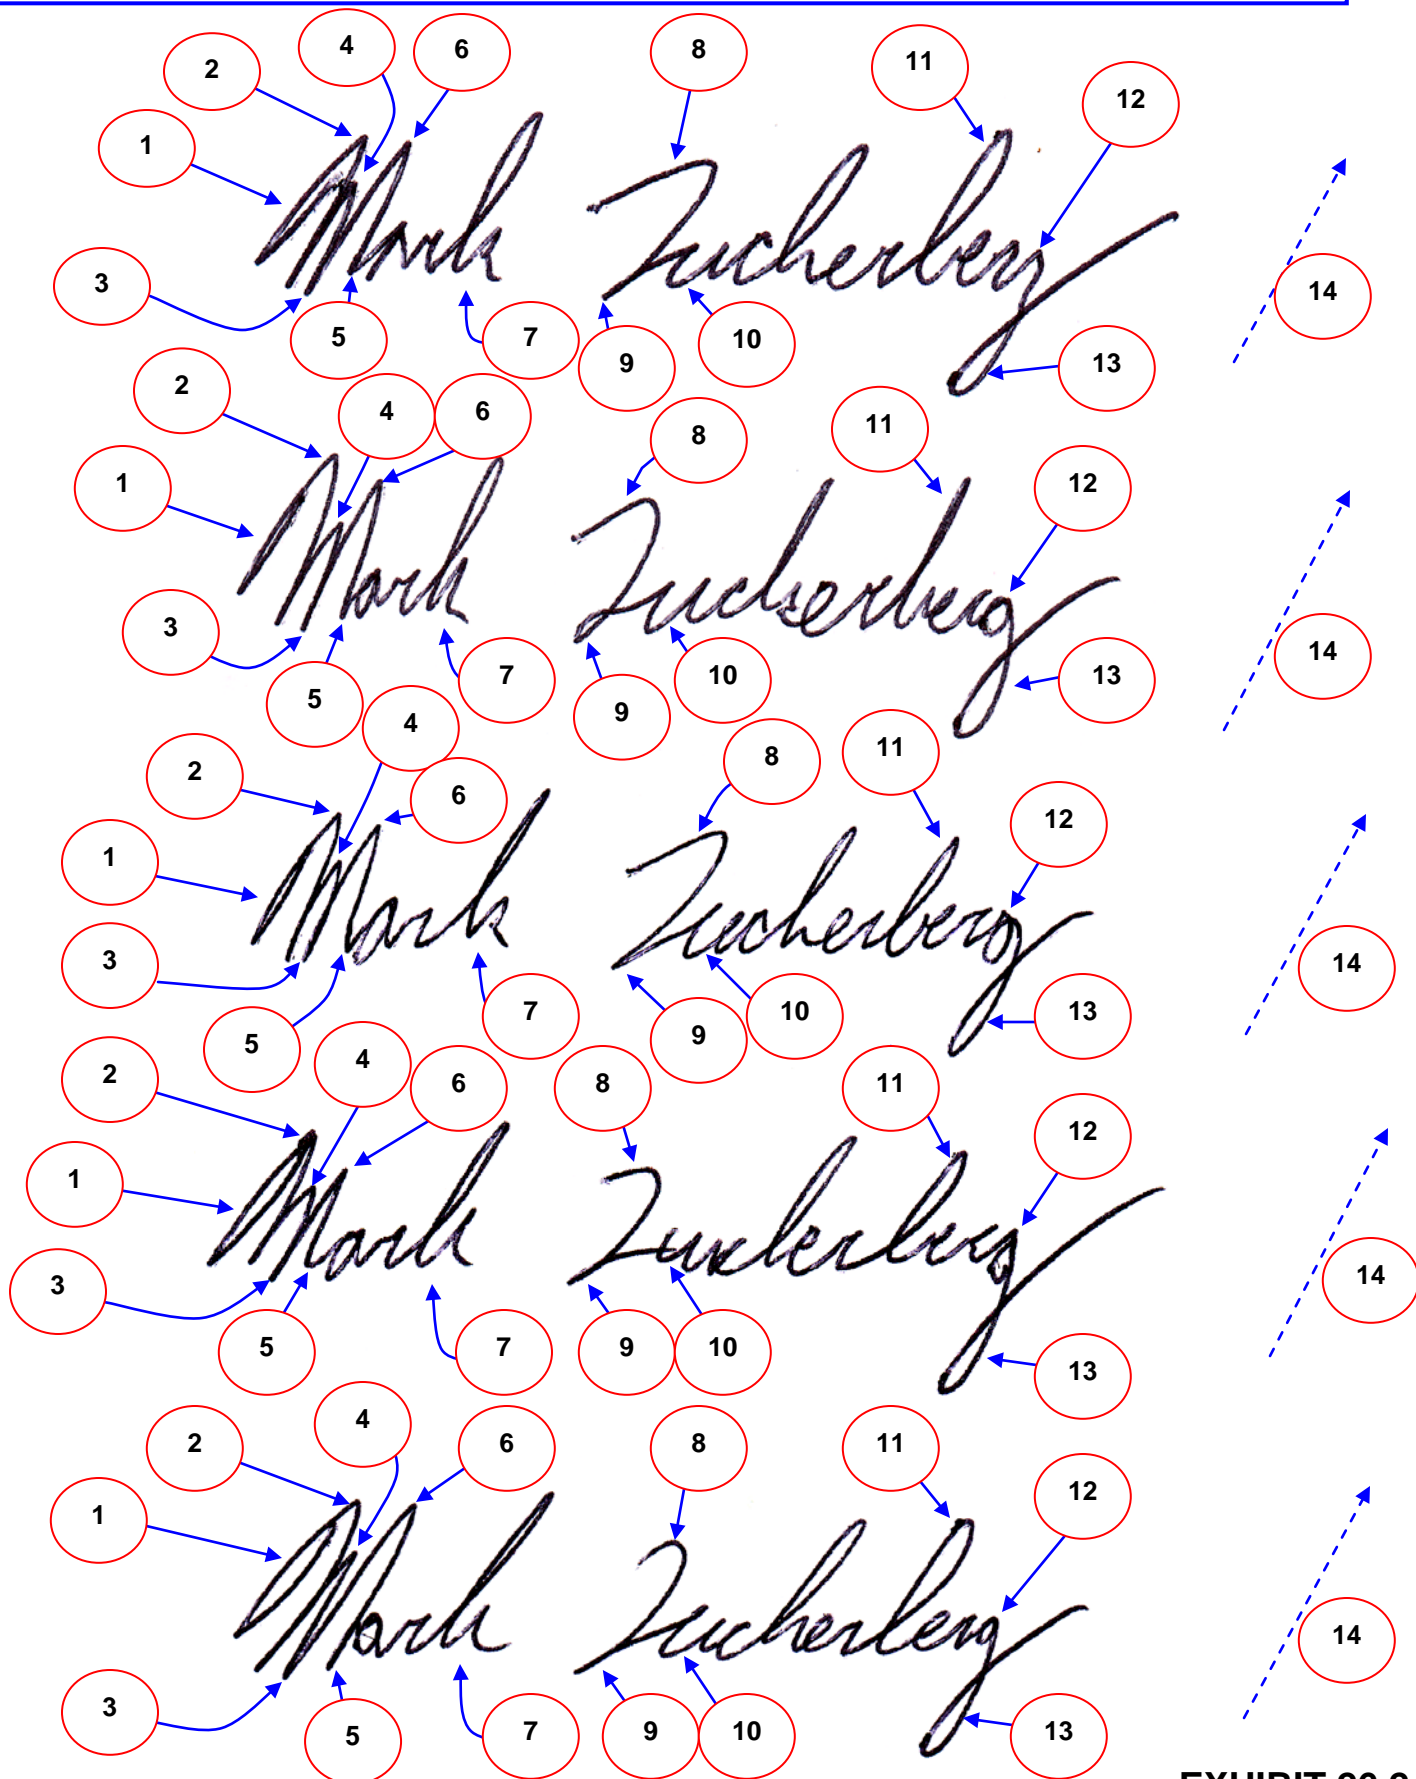 4 6 8 11
2 12
1
Mark Zuckerberg
3 14
5 7 9 10 13
2 4 6 8 11
1 12
Mark Zuckerberg
3 14
5 7 9 10 13
4 8 11
2 6 12
1
Mark Zuckerberg
3 14
5 7 9 10 13
2 4 6 8 11
1 12
Mark Zuckerberg
3 14
5 7 9 10 13
2 4 6 8 11
1 12
Mark Zuckerberg
3 14
5 7 9 10 13